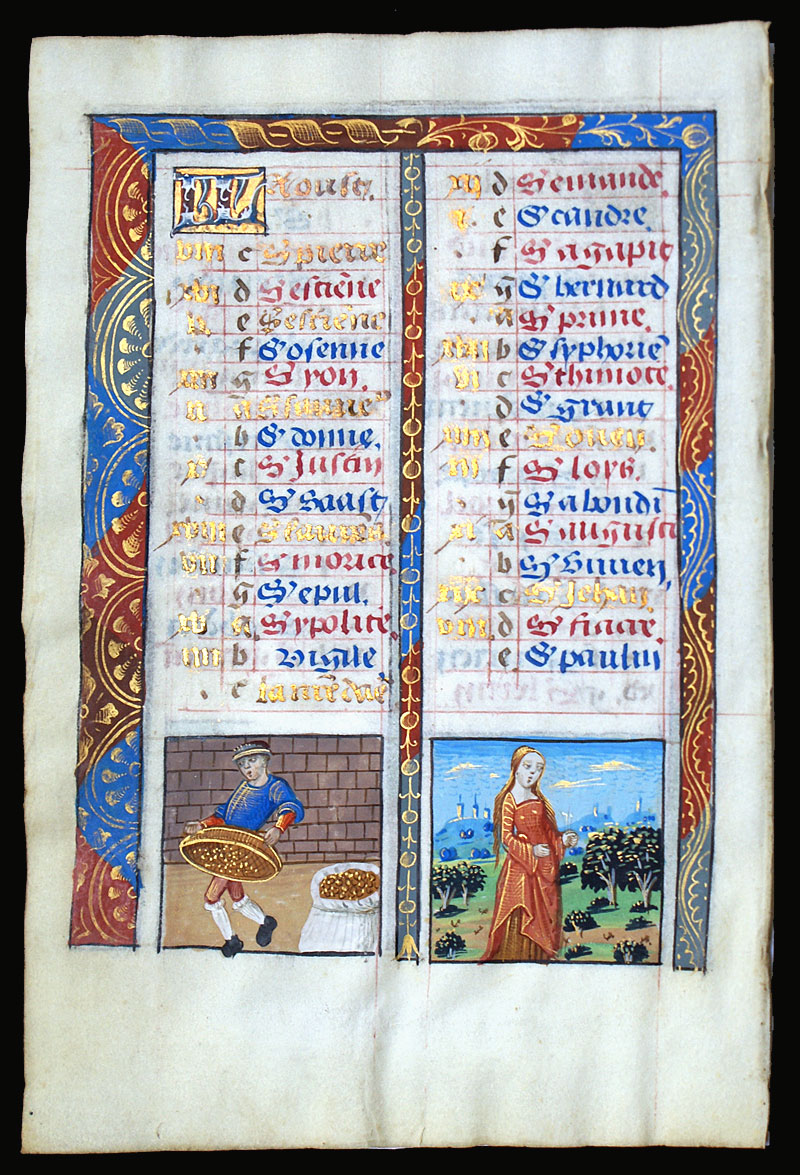 KL Aoust.
viii c S' pierre
xvi d S' estiēne
v e S' estiēne
f S' osenne
xiii g S' yon.
ii a
b S' donne.
x c S' Justin
d S' Saast
xviii e S' laurens
vii f S' morice
g S' epul.
a S' ypolite.
iiii b Vigile
c la nr̄e dāe
xii d S' emande.
i e S' candre.
f S' agapit
ix g S' bernard
a S' prime.
xvii b S' syphoriē
vi c S' thimote.
d S' grant
xiiii e S' ouen.
iii f S' loys.
g S' abondī
xi a S' augusti
b S' Simen,
xix c S' Jehan.
viii. d S' fiacre.
e S' paulin